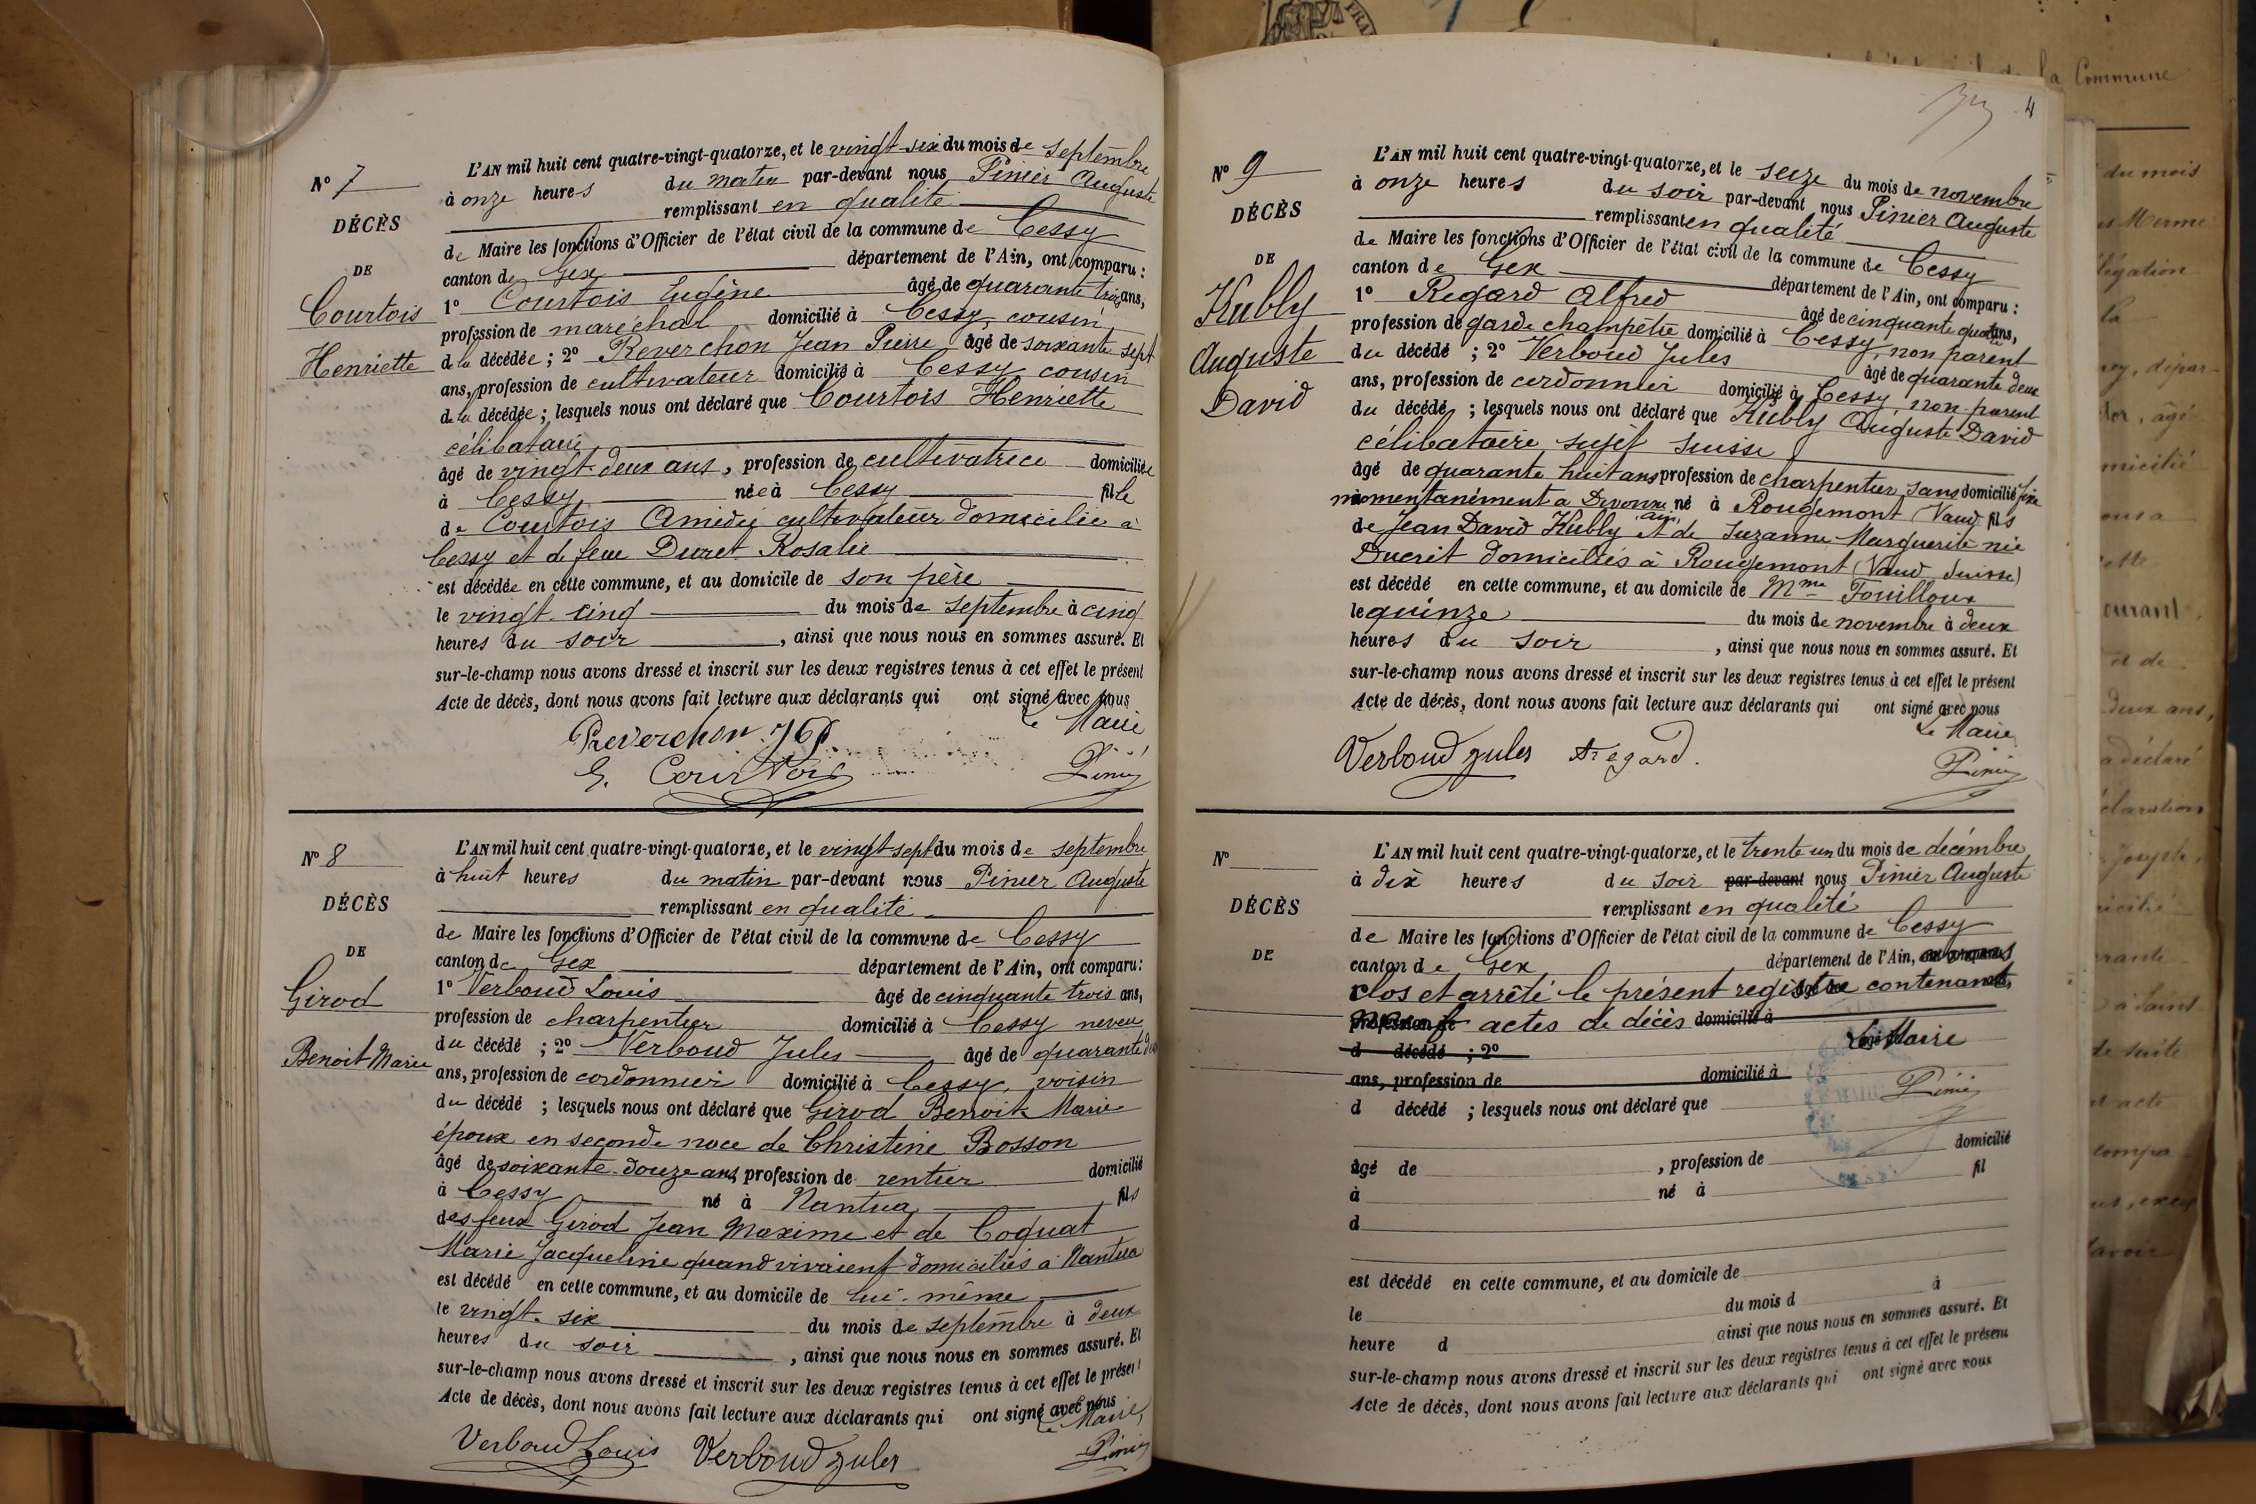 Nº 7
DÉCÈS
DE
Courtois
Henriette
L'AN mil huit cent quatre-vingt-quatorze, et le vingt-six du mois de septembre
à onze heures du matin par-devant nous Pinier Auguste
remplissant en qualité
de Maire les fonctions d'Officier de l'état civil de la commune de Cessy
canton de Gex département de l'Ain, ont comparu :
1º Courtois Eugène âgé de quarante trois ans,
profession de maréchal domicilié à Cessy, cousin
de la décédée ; 2º Reverchon Jean Pierre âgé de soixante sept
ans, profession de cultivateur domicilié à Cessy cousin
de la décédée ; lesquels nous ont déclaré que Courtois Henriette
célibataire
âgé de vingt-deux ans, profession de cultivatrice domiciliée
à Cessy née à Cessy fille
de Courtois Amédée cultivateur domicilié à
Cessy et de feue Duret Rosalie
est décédée en cette commune, et au domicile de son père
le vingt-cinq du mois de septembre à cinq
heures du soir , ainsi que nous nous en sommes assuré. Et
sur-le-champ nous avons dressé et inscrit sur les deux registres tenus à cet effet le présent
Acte de décès, dont nous avons fait lecture aux déclarants qui ont signé avec nous
Le Maire
Reverchon
E. Courtois Pinier
Nº 8
DÉCÈS
DE
Girod
Benoit Marie
L'AN mil huit cent quatre-vingt-quatorze, et le vingt-sept du mois de septembre
à huit heures du matin par-devant nous Pinier Auguste
remplissant en qualité
de Maire les fonctions d'Officier de l'état civil de la commune de Cessy
canton de Gex département de l'Ain, ont comparu:
1º Verboud Louis âgé de cinquante trois ans,
profession de charpentier domicilié à Cessy neveu
du décédé ; 2º Verboud Jules âgé de quarante deux
ans, profession de cordonnier domicilié à Cessy, voisin
du décédé ; lesquels nous ont déclaré que Girod Benoit Marie
époux en seconde noce de Christine Bosson
âgé de soixante-douze ans, profession de rentier domicilié
à Cessy né à Nantua fils
des feux Girod Jean Maxime et de Coquat
Marie Jacqueline quand vivaient domiciliés à Nantua
est décédé en cette commune, et au domicile de lui-même
le vingt-six du mois de septembre à deux
heures du soir , ainsi que nous nous en sommes assuré. Et
sur-le-champ nous avons dressé et inscrit sur les deux registres tenus à cet effet le présent
Acte de décès, dont nous avons fait lecture aux déclarants qui ont signé avec nous
Le Maire,
Verboud Louis Verboud Jules Pinier
4
Nº 9
DÉCÈS
DE
Kubly
Auguste
David
L'AN mil huit cent quatre-vingt-quatorze, et le seize du mois de novembre
à onze heures du soir par-devant nous Pinier Auguste
remplissant en qualité
de Maire les fonctions d'Officier de l'état civil de la commune de Cessy
canton de Gex département de l'Ain, ont comparu :
1º Regard Alfred âgé de cinquante quatre ans,
profession de garde champêtre domicilié à Cessy, non parent
du décédé ; 2º Verboud Jules âgé de quarante deux
ans, profession de cordonnier domicilié à Cessy non parent
du décédé ; lesquels nous ont déclaré que Kubly Auguste David
célibataire sujet suisse
âgé de quarante huit ans profession de charpentier, sans domicilié fixe
momentanément à Divonne né à Rougemont (Vaud) fils
de Jean David Kubly et de Suzanne Marguerite née
Ducret domiciliés à Rougemont (Vaud Suisse)
est décédé en cette commune, et au domicile de Mme Fouilloux
le quinze du mois de novembre à deux
heures du soir , ainsi que nous nous en sommes assuré. Et
sur-le-champ nous avons dressé et inscrit sur les deux registres tenus à cet effet le présent
Acte de décès, dont nous avons fait lecture aux déclarants qui ont signé avec nous
Le Maire
Verboud Jules A regard. Pinier
Nº
DÉCÈS
DE
L'AN mil huit cent quatre-vingt-quatorze, et le trente un du mois de décembre
à dix heures du soir par-devant nous Pinier Auguste
remplissant en qualité
de Maire les fonctions d'Officier de l'état civil de la commune de Cessy
canton de Gex département de l'Ain, ont comparu
clos et arrêté le présent registre contenant
profession de neuf actes de décès domicilié à
d décédé ; 2º Le Maire
ans, profession de domicilié à Pinier
d décédé ; lesquels nous ont déclaré que
âgé de , profession de domicilié
à né à fil
d
est décédé en cette commune, et au domicile de
le du mois d à
heure d ainsi que nous nous en sommes assuré. Et
sur-le-champ nous avons dressé et inscrit sur les deux registres tenus à cet effet le présent
Acte de décès, dont nous avons fait lecture aux déclarants qui ont signé avec nous
la Commune
du mois